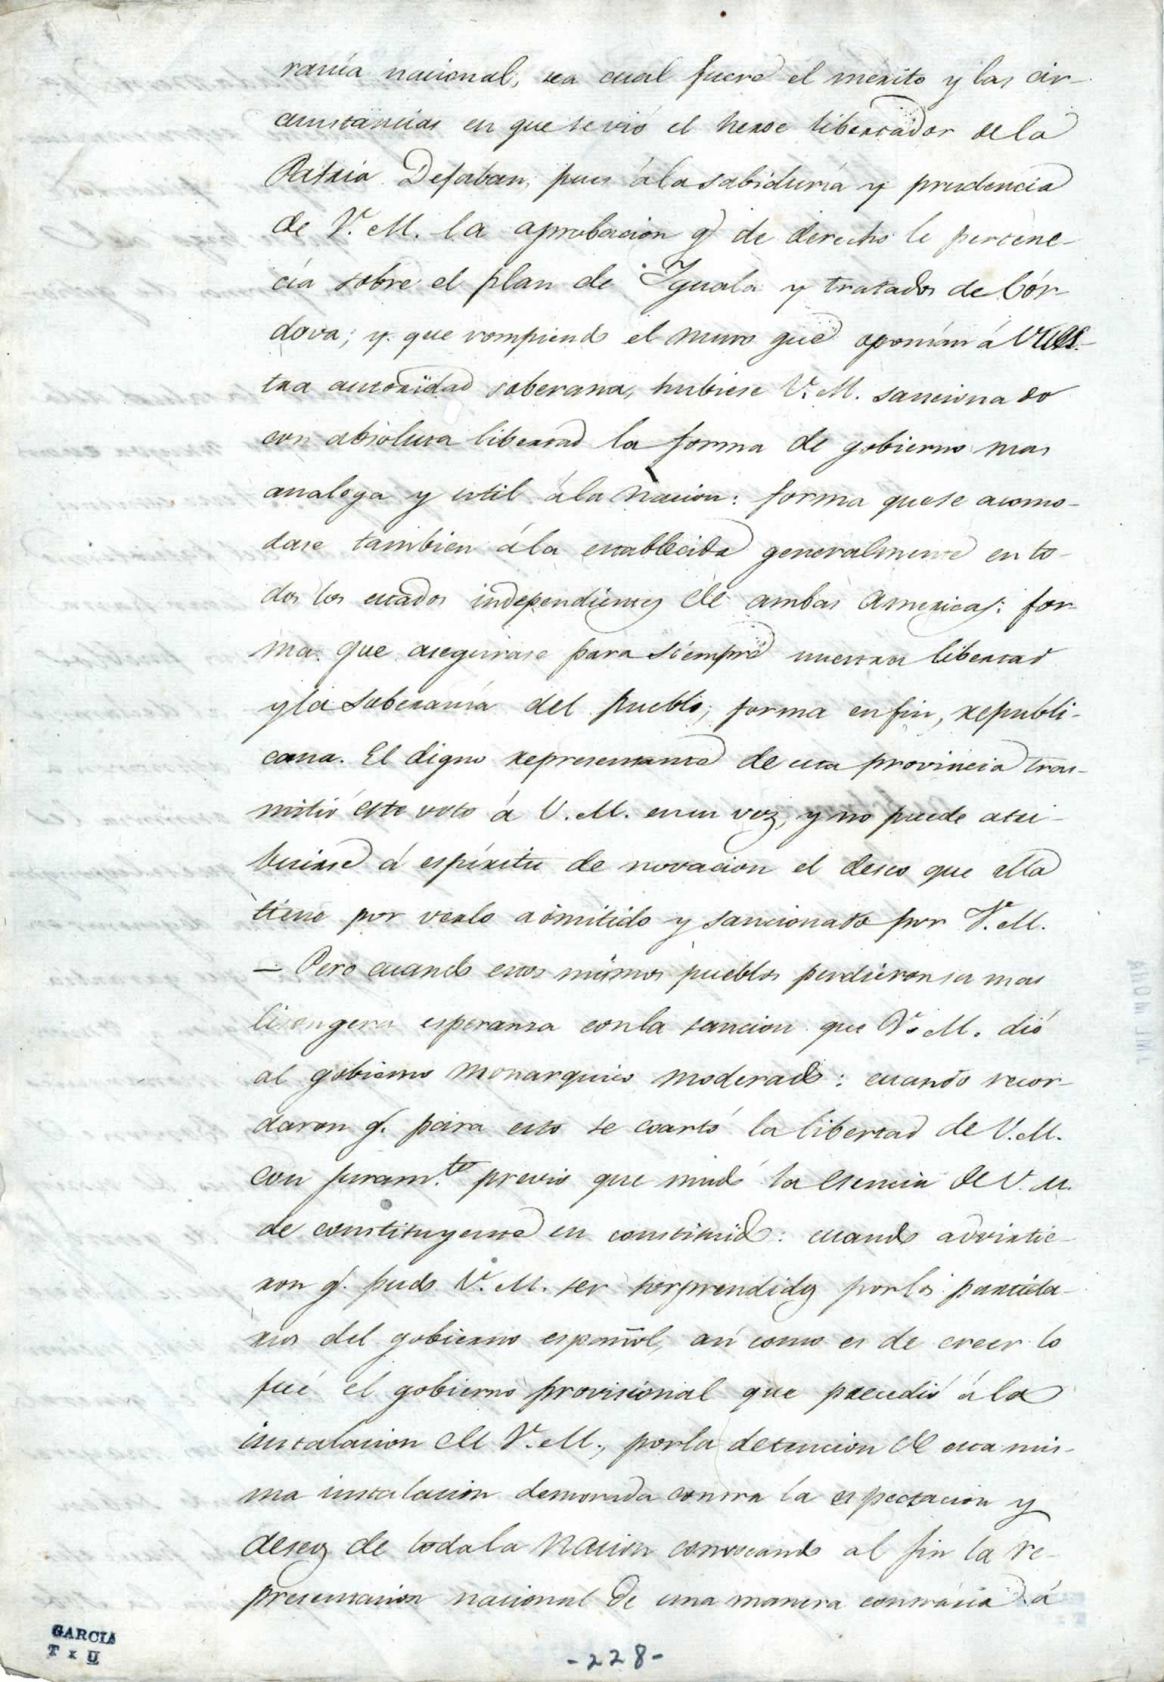 ranía nacional, sea cual fuere el merito y las cir-
cunstancias en que se vió el heroe libertador de la
Patria. Dejaban, pues á la sabiduría y prudencia
de V. M. la aprobacion q. de derecho le pertene-
cía sobre el plan de Iguala y tratados de Cór-
dova; y que rompiendo el muro que oponían á vues-
tra autoridad soberana, hubiese V. M. sancionado
con absoluta libertad la forma de gobierno mas
analoga y util á la Nacion: forma que se acomo-
dase tambien á la establecida generalmente en to-
dos los estados independientes de ambas Americas: for-
ma que asegurase para siempre nuestra libertad
y la soberanía del pueblo; forma en fin, republi-
cana. El digno representante de esta provincia tras-
mitió este voto á V. M. en su vez, y no puede atri-
buirse á espiritu de novacion el deseo que ella
tiene por verlo admitido y sancionado por V. M.
— Pero cuando estos mismos pueblos perdieron su mas
lisongera esperanza con la sancion que V. M. dió
al gobierno Monarquico moderado: cuando recor-
daron q. para esto se coartó la libertad de V. M.
con juram.to previo que mudó la esencia de V. M.
de constituyente en constituido: cuando advirtie-
ron q. pudo V. M. ser sorprendido por los partida-
rios del gobierno español, así como es de creer lo
fué el gobierno provisional que precedió á la
instalacion de V. M., por la detencion de esta mis-
ma instalacion demorada contra la espectacion y
deseos de toda la Nacion convocando al fin la re-
presentacion nacional de una manera contraria á
GARCIA
T x II
-228-